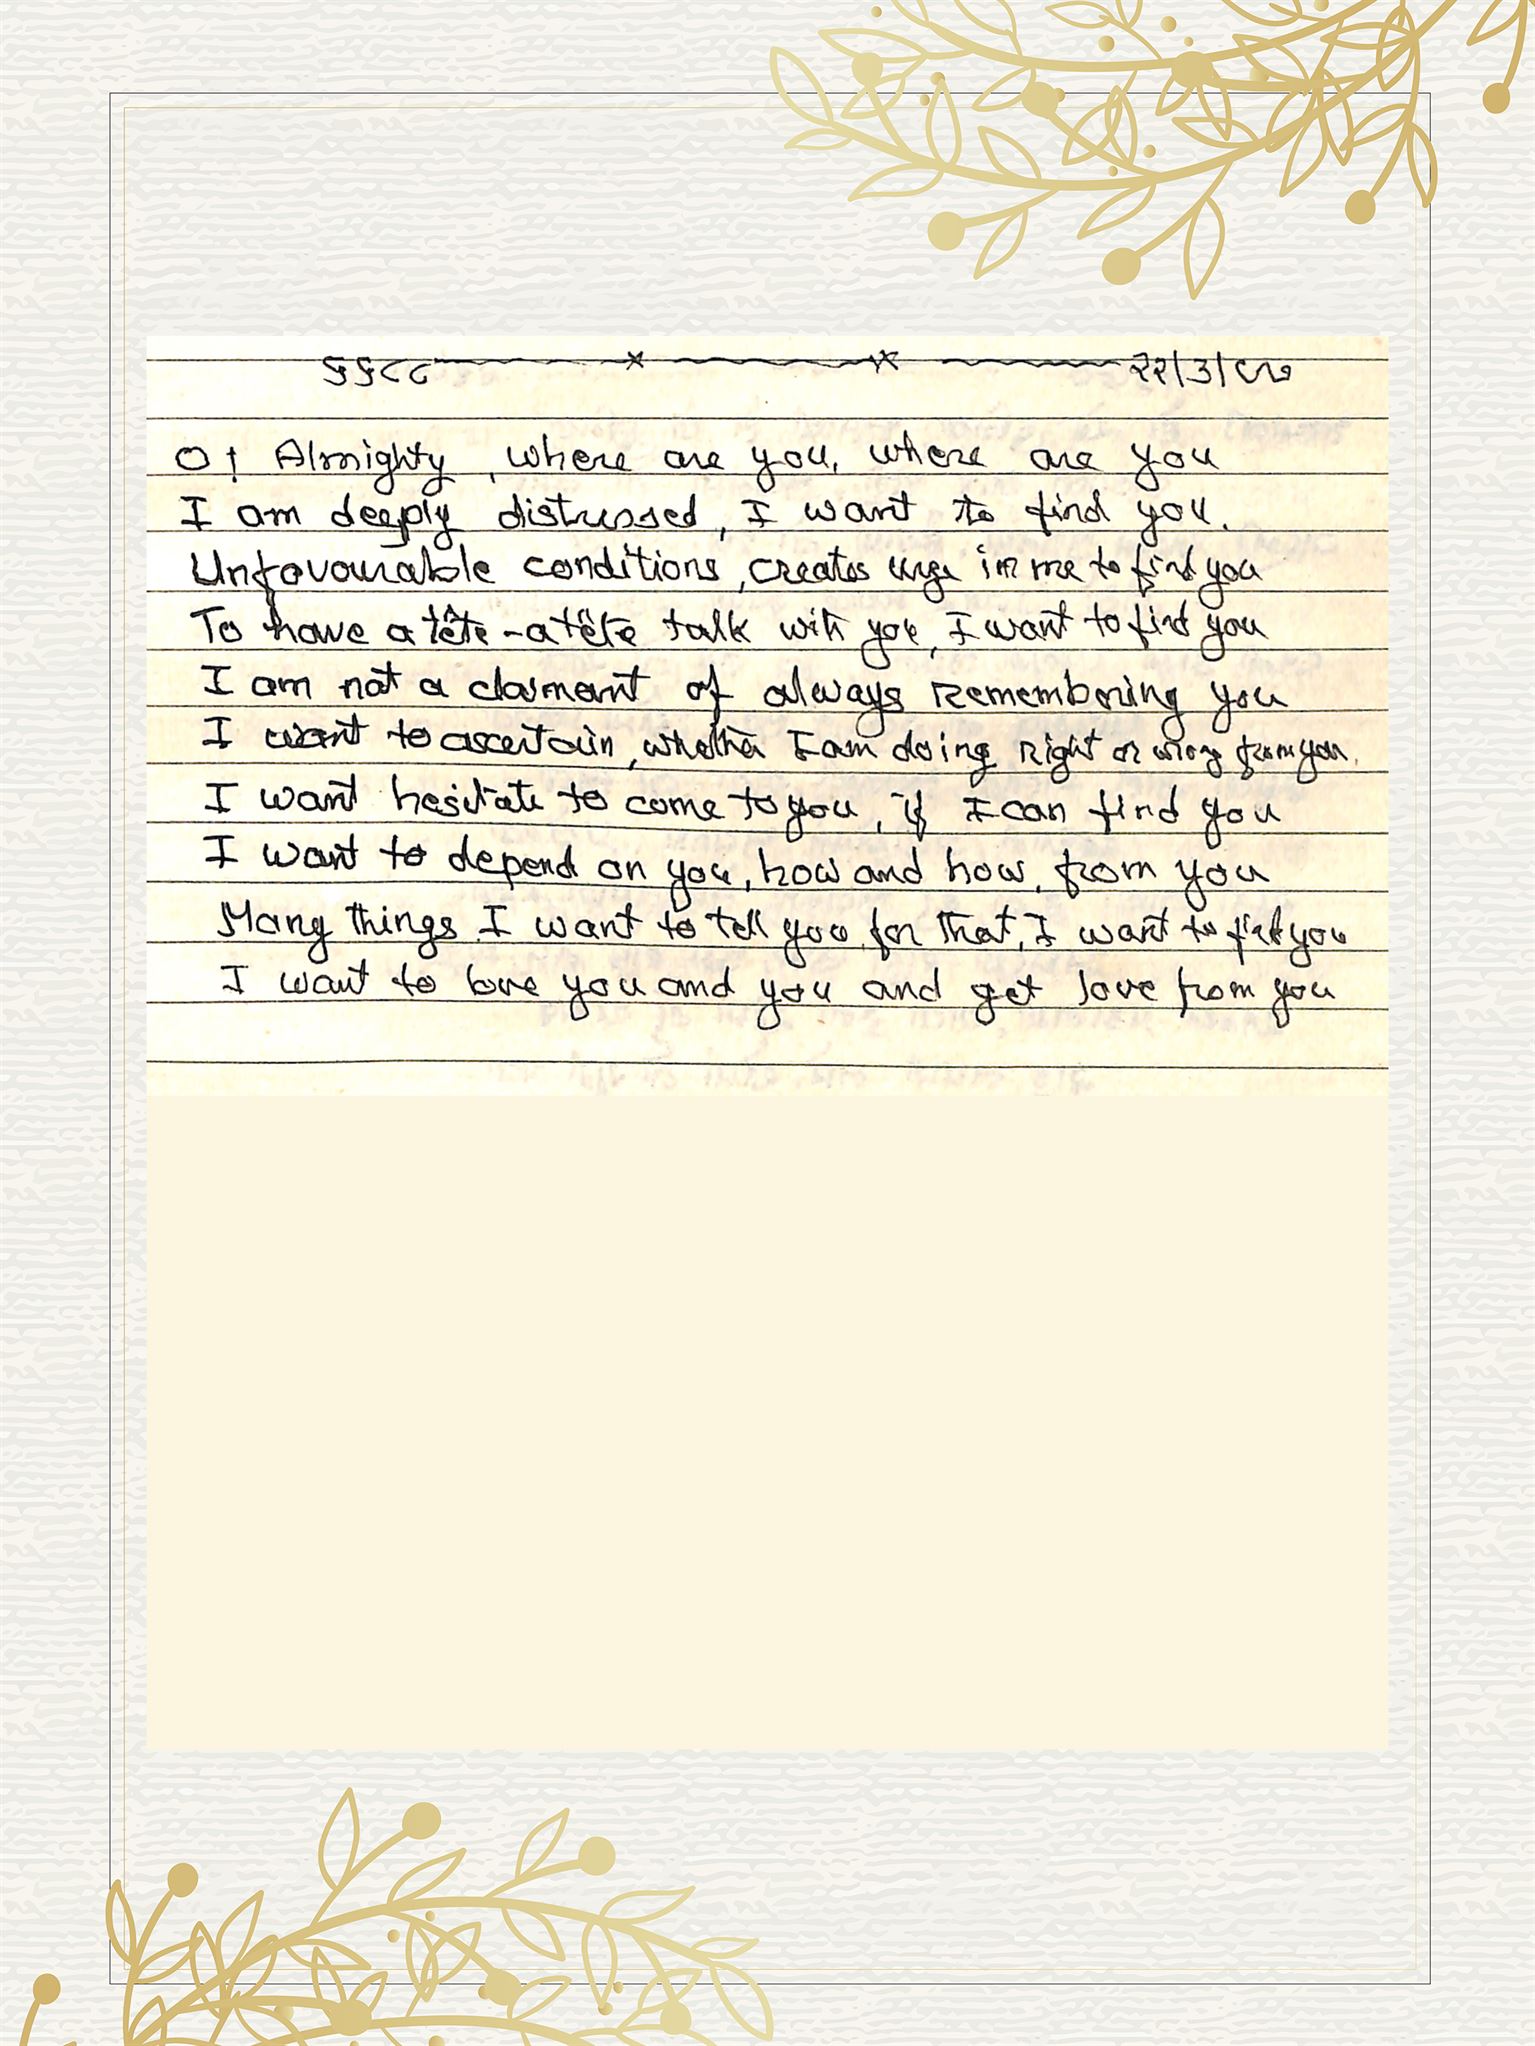 O! Almighty, where are you, where are you
I am deeply distressed, I want to find you.
Unfavourable conditions, creates urge in me to find you
To have a tête-a tête talk with you, I want to find you
I am not a claimant of always remembering you
I want to ascertain, whether I am doing right or wrong from you.
I want hesitate to come to you, if I can find you
I want to depend on you, how and how, from you
Many things I want to tell you, for that, I want to find you
I want to love you and you and get love from you